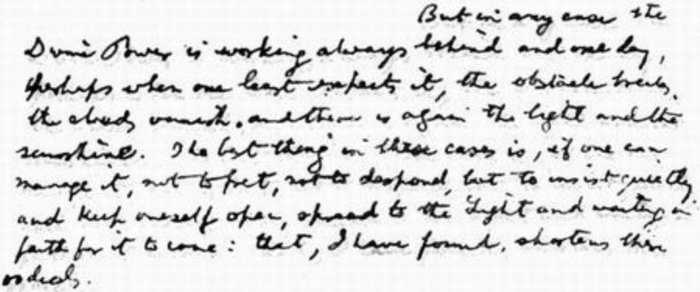 But in any case the
Divine Power is working always behind and one day,
perhaps when one least expects it, the obstacle breaks,
the clouds vanish, and there is again the light and the
sunshine. The best thing in these cases is, if one can
manage it, not to fret, not to despond, but to insist quietly
and keep oneself open, spread to the Light and waiting in
faith for it to come: that, I have found, shortens these
ordeals.